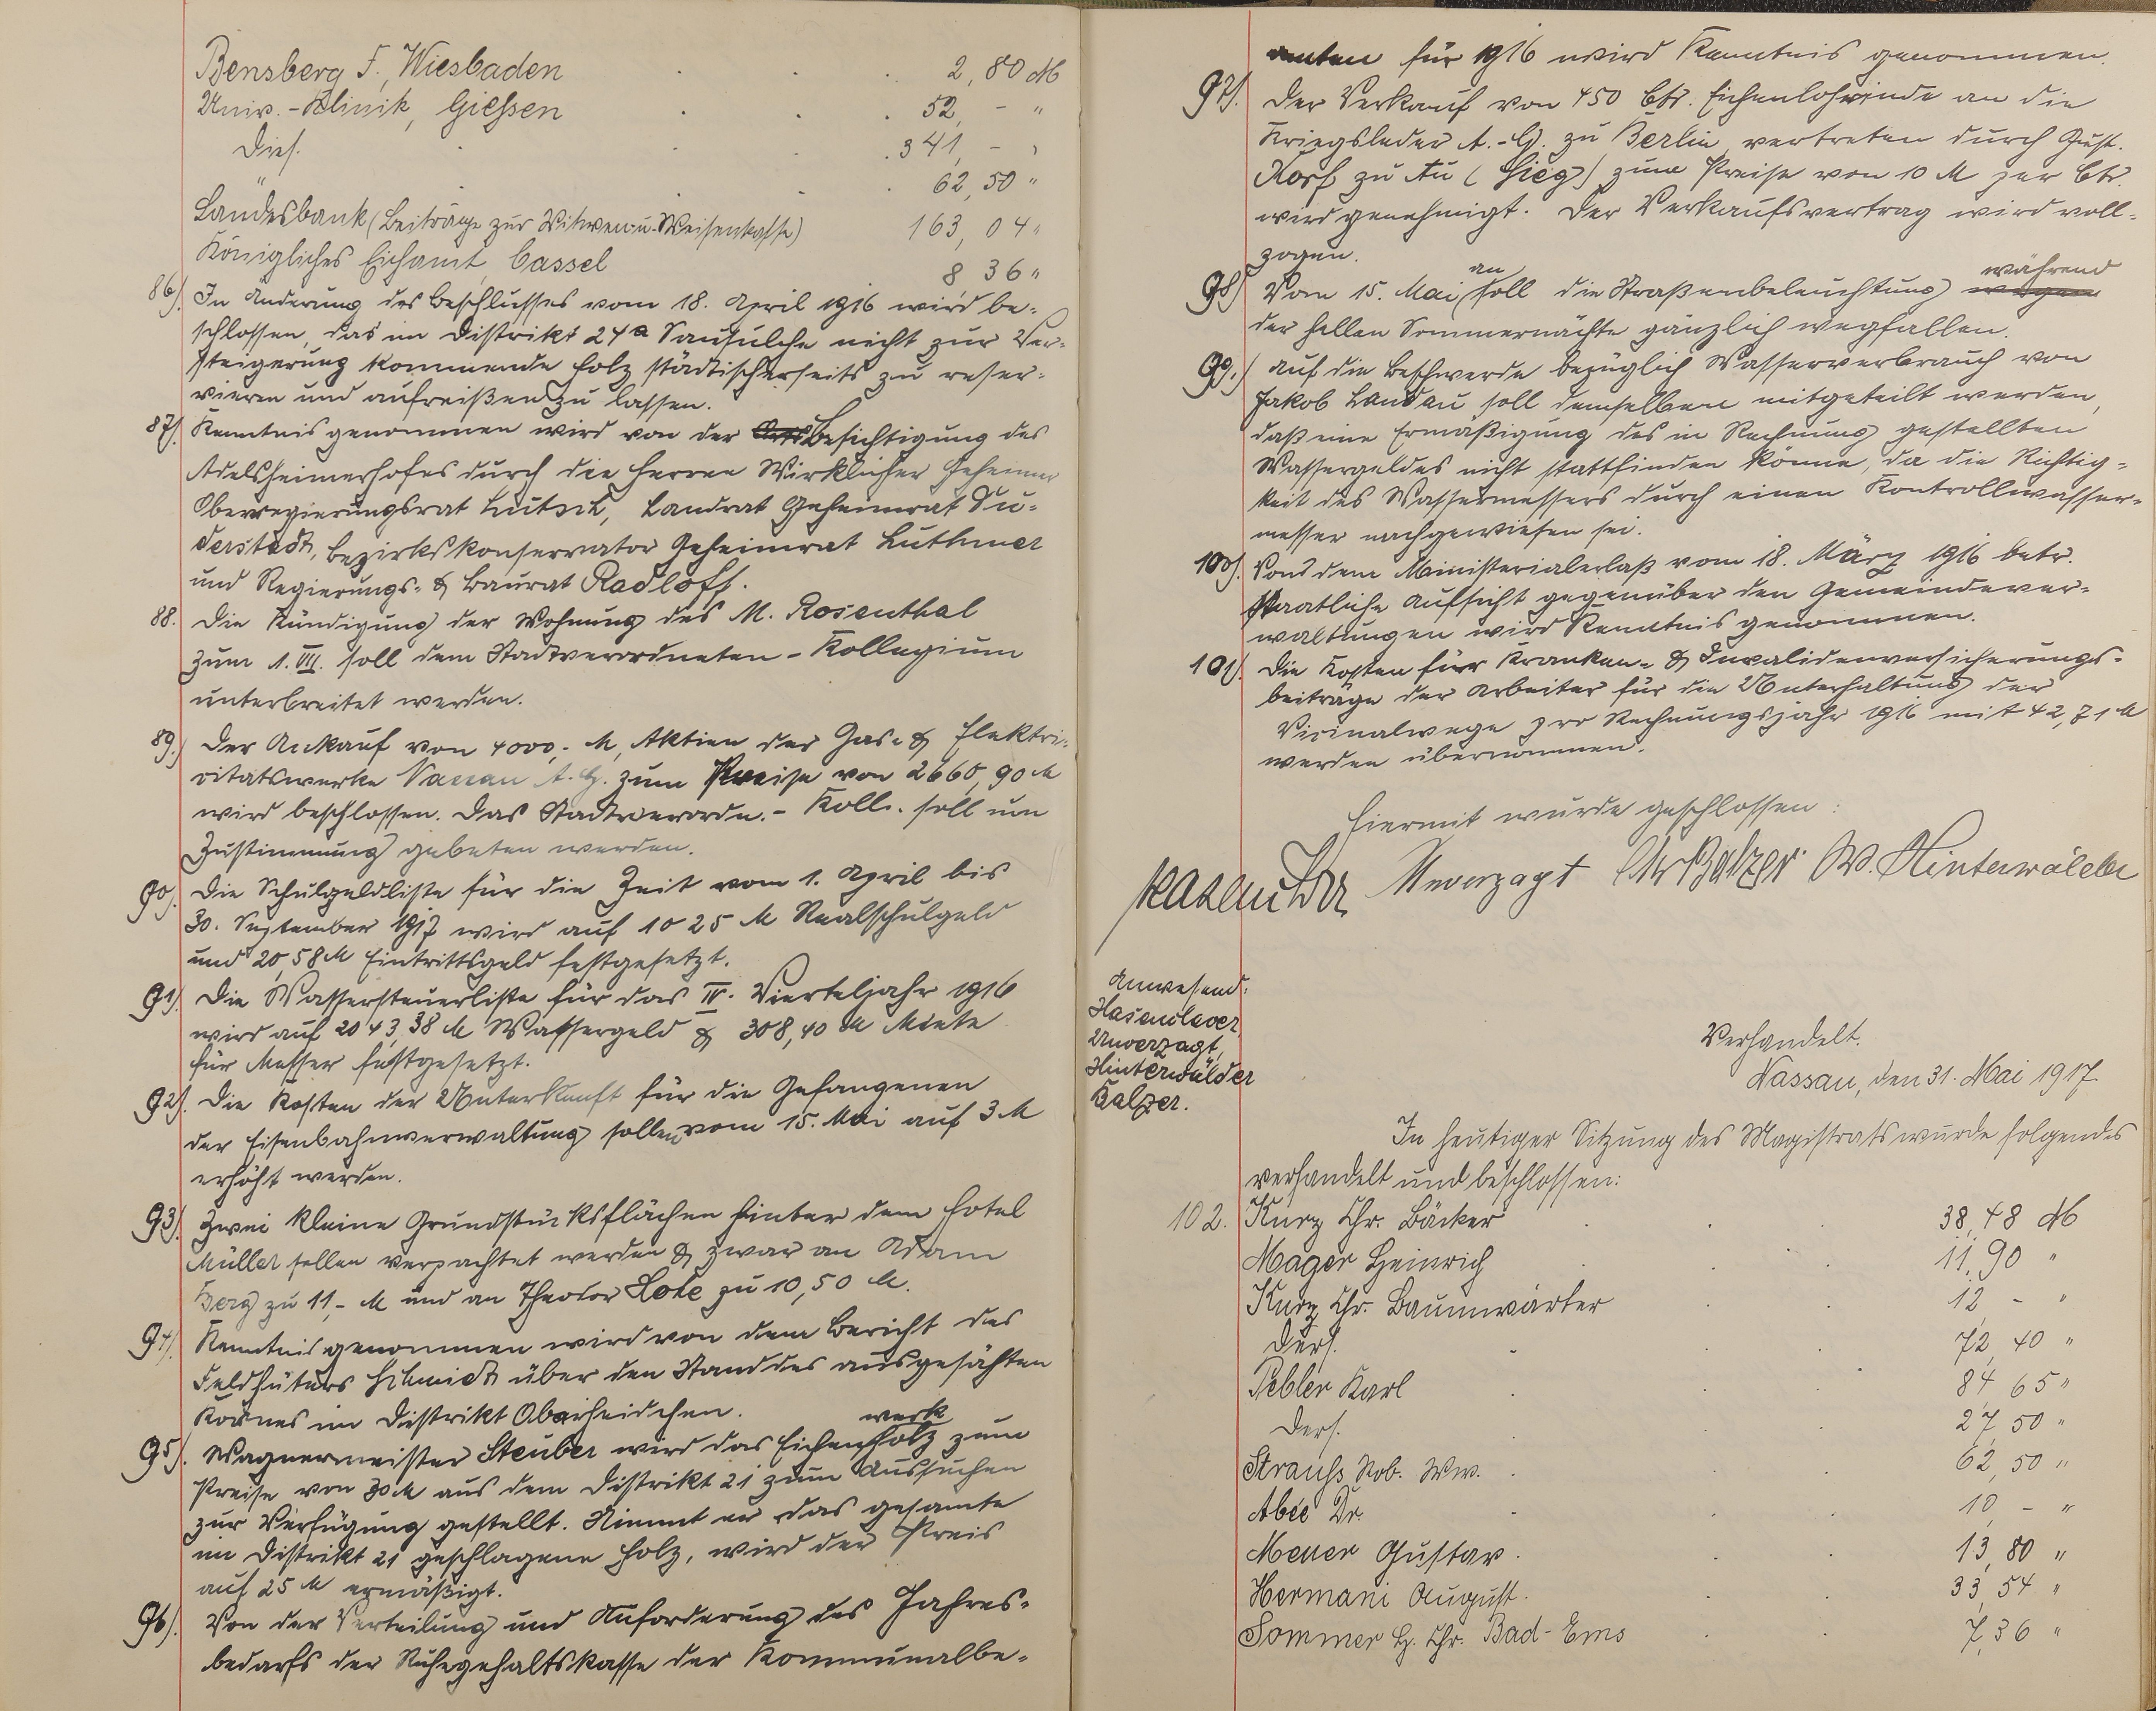 Bensberg F., Wiesbaden . . . 2,80 M
Univ.-Klinik, Giessen . . . 52,- "
Dies. . . . 341,- "
" . . 62,50 "
Landesbank (Beiträge zur Witwen u. Weisenkasse) 163,04 "
Königliches Eichamt, Cassel 8,36 "
86). In Änderung des Beschlusses vom 18. April 1916 wird be-
schlossen, das im Distrikt 24a Sausulche nicht zur Ver-
steigerung kommende Holz städtischerseits zu reser-
vieren und aufreißen zu lassen.
87). Kenntnis genommen wird von der Besichtigung des
Adelsheimerhofes durch die Herren Wirklicher Geheimer
Oberregierungsrat Lutsch, Landrat Geheimrat Du-
derstadt, Bezirkskonservator Geheimrat Luthmer
und Regierungs- & Baurat Radloff.
88. Die Kündigung der Wohnung des M. Rosenthal
zum 1. VII. soll dem Stadtverordneten-Kollegium
unterbreitet werden.
89.) Der Ankauf von 4000,- M, Aktien der Gas- & Elektri-
citätswerke Nassau A.G. zum Preise von 2660,90 M
wird beschlossen. Das Stadtverordn.-Koll. soll um
Zustimmung gebeten werden.
90). Die Schulgeldliste für die Zeit vom 1. April bis
30. September 1917 wird auf 1025 M Realschulgeld
und 20,58 M Eintrittsgeld festgesetzt.
91). Die Wassersteuerliste für das IV. Vierteljahr 1916
wird auf 2043,38 M Wassergeld & 308,40 M Miete
für Messer festgesetzt.
92). Die Kosten der Unterkunft für die Gefangenen
der Eisenbahnverwaltung sollen vom 15. Mai auf 3 M
erhöht werden.
93). Zwei kleine Grundstücksflächen hinter dem Hotel
Müller sollen verpachtet werden & zwar an Adam
Berg zu 11,- M und an Theodor Lote zu 10,50 M.
94). Kenntnis genommen wird von dem Bericht des
Feldhüters Schmidt über den Stand des ausgesähten
Kornes im Distrikt Oberheidchen.
werk
95). Wagnermeister Steuber wird das Eichenholz zum
Preise von 30 M aus dem Distrikt 21 zum Aussuchen
zur Verfügung gestellt. Nimmt er das gesamte
im Distrikt 21 geschlagene Holz, wird der Preis
auf 25 M ermäßigt.
96). Von der Verteilung und Anforderung des Jahres-
bedarfs der Ruhegehaltskasse der Kommunalbe-
amten für 1916 wird Kenntnis genommen.
97). Der Verkauf von 450 Ctr. Eichenlohrinde an die
Kriegsleder A.-G. zu Berlin, vertreten durch Gust.
Korf zu Au (Sieg) zum Preise von 10 M per Ctr.
wird genehmigt. Der Verkaufsvertrag wird voll-
zogen.
98) Vom 15. Mai an soll die Straßenbeleuchtung wegen während
der hellen Sommernächte gänzlich wegfallen.
99.) Auf die Beschwerde bezüglich Wasserverbrauch von
Jakob Landau soll demselben mitgeteilt werden,
daß eine Ermäßigung des in Rechnung gestellten
Wassergeldes nicht stattfinden könne, da die Richtig-
keit des Wassermessers durch einen Kontrollwasser-
messer nachgewiesen sei.
100). Von dem Ministerialerlaß vom 18. März 1916 betr.
staatliche Aufsicht gegenüber den Gemeindever-
waltungen wird Kenntnis genommen.
101). Die Kosten für Kranken- & Invalidenversicherungs-
beiträge der Arbeiter für die Unterhaltung der
Vicinalwege pro Rechnungsjahr 1916 mit 42,71 M
werden übernommen.
Hiermit wurde geschlossen:
Hasenclever Unverzagt Chr Balzer W. Hinterwälder
Anwesend:
Hasenclever,
Unverzagt,
Hinterwälder
Balzer.
Verhandelt.
Nassau, den 31. Mai 1917.
In heutiger Sitzung des Magistrats wurde folgendes
verhandelt und beschlossen:
102. Kurz Chr. Bäcker . . 38,48 M
Mager Heinrich . . 11,90 "
Kurz Chr. Baumwärter . . 12,- "
Ders. . . 72,40 "
Pebler Karl . . 84,65 "
Ders. . . 27,50 "
Strauss Rob. Ww. . . 62,50 "
Abée Dr. . . 10,- "
Meuer Gustav . . 13,80 "
Hermani August . . 33,54 "
Sommer H. Chr. Bad-Ems . . 7,36 "